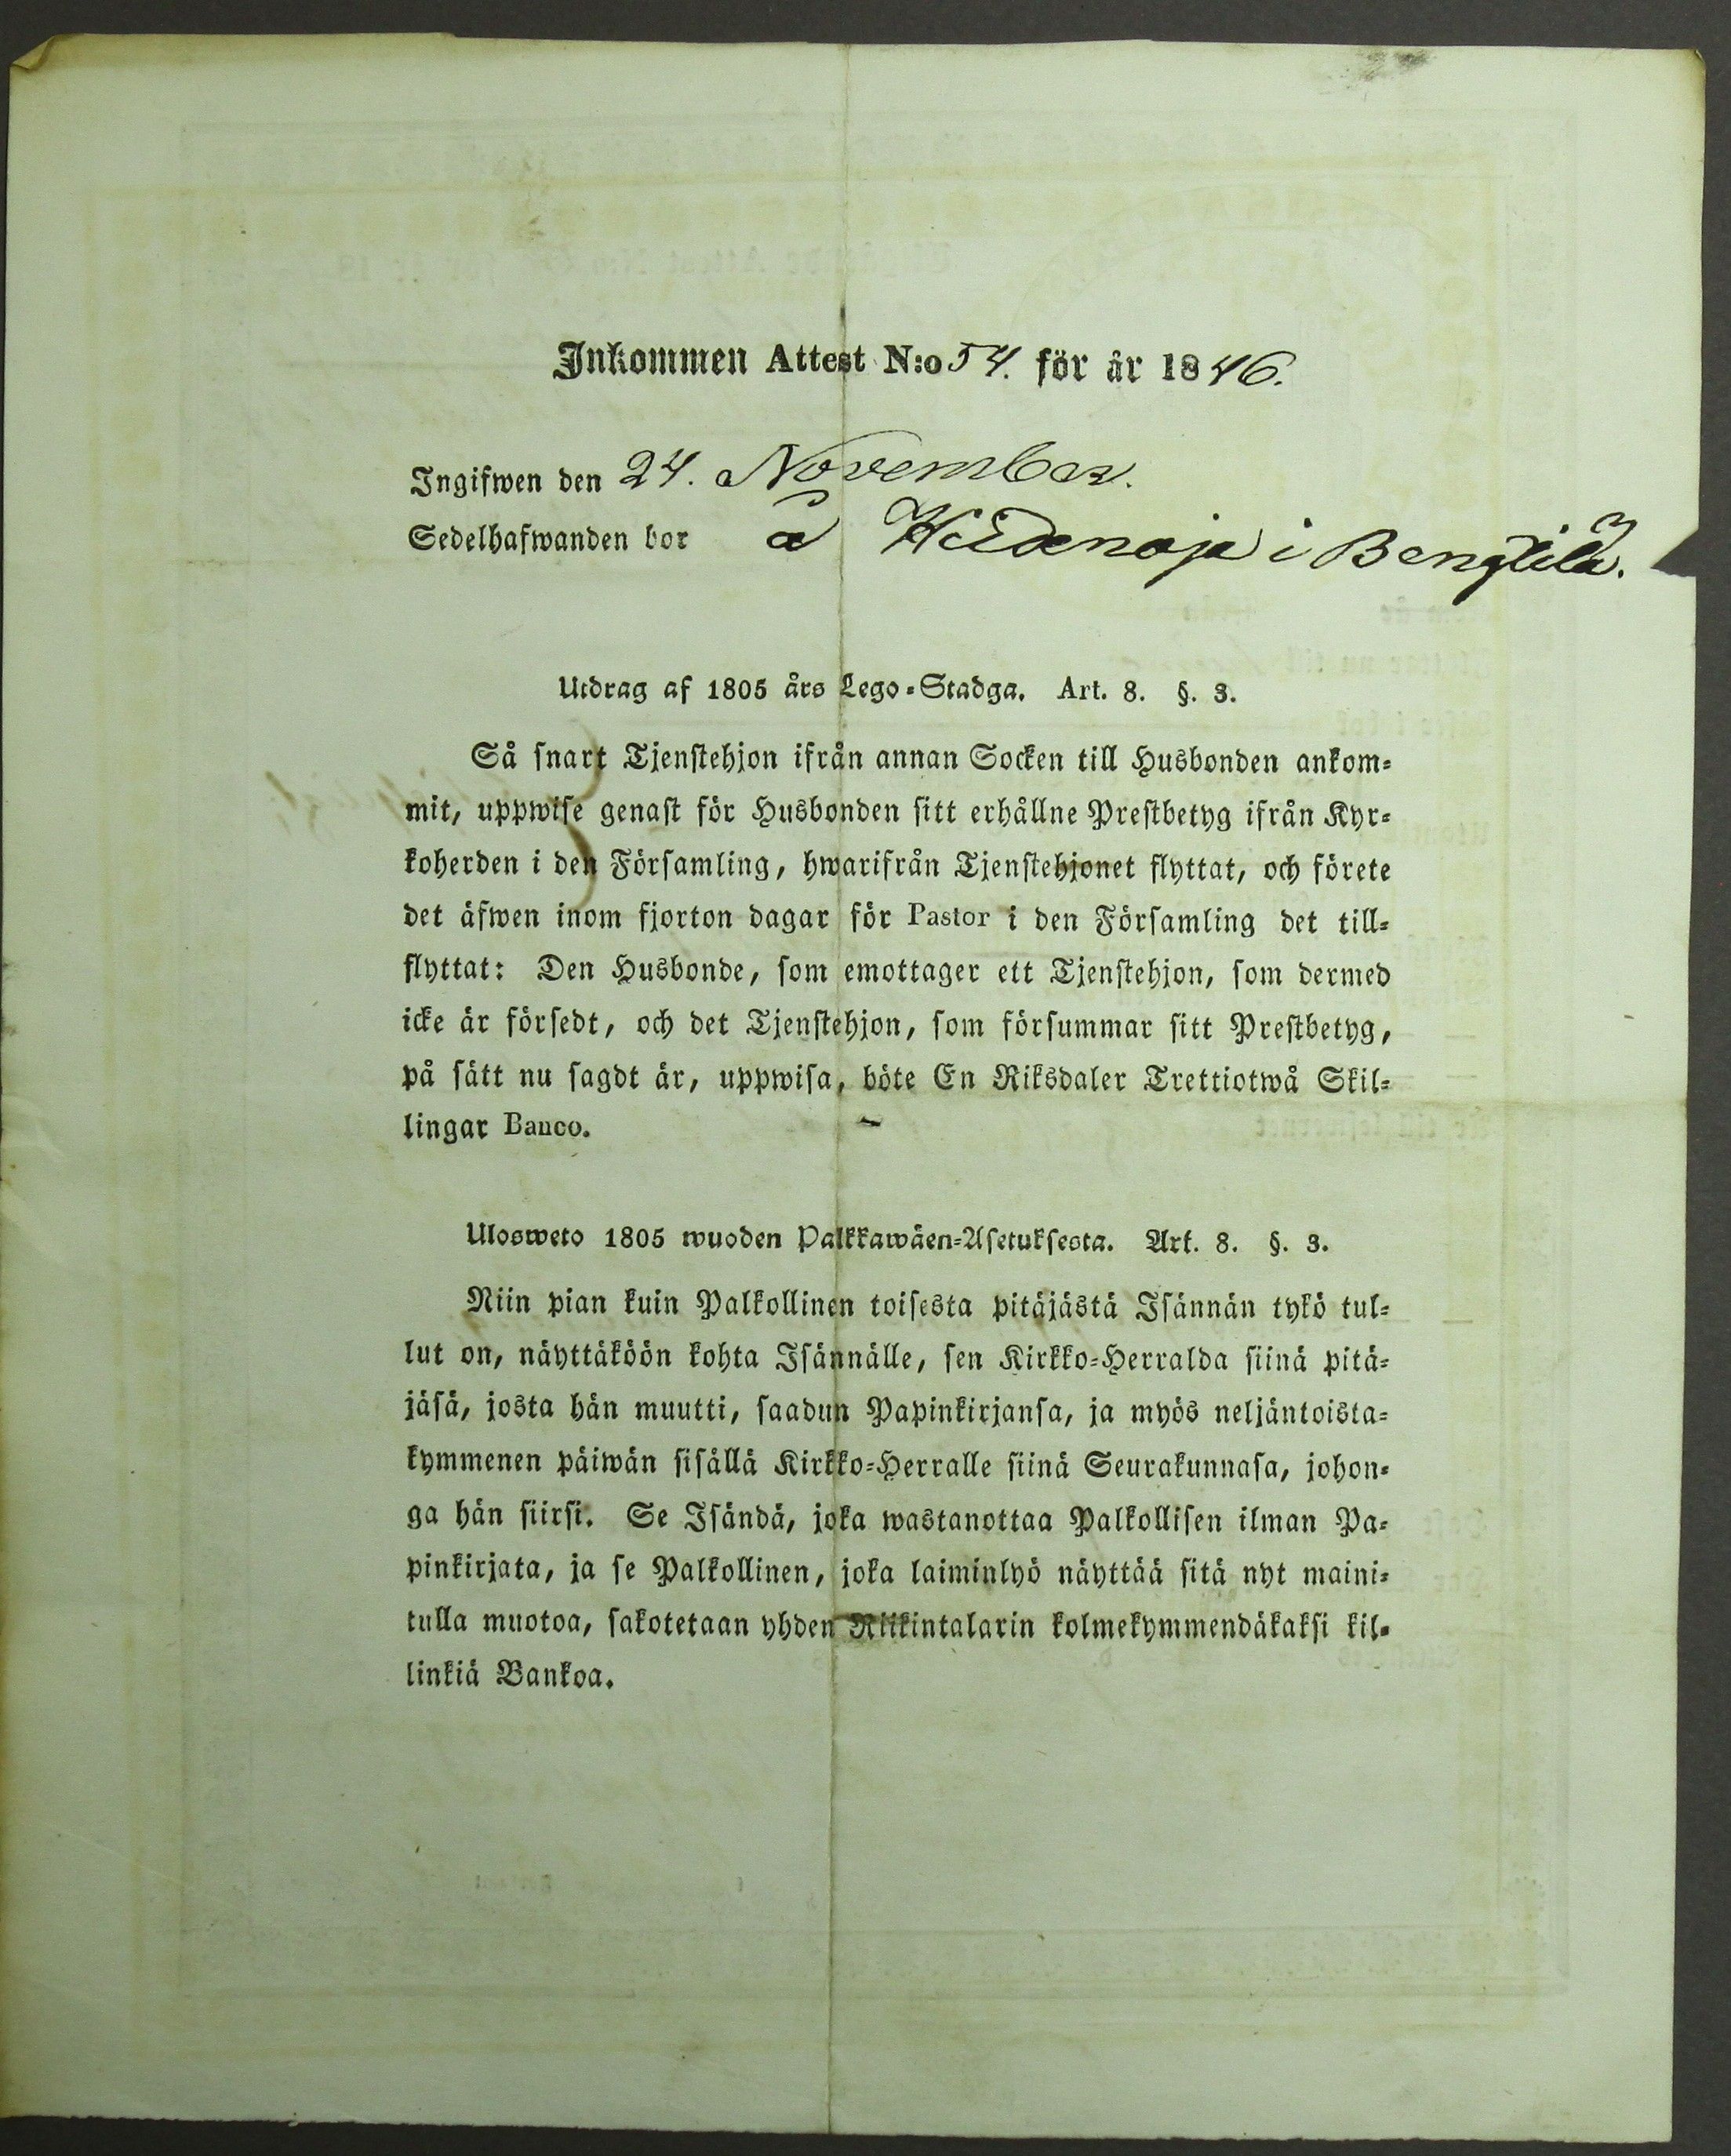 Inkommen Attest N:o 54. för år 1846.
Ingifwen den 24. November.
Sedelhafwanden bor å Hidanoja i Bengtilä.
Utdrag af 1805 års Lego-Stadga. Art. 8. §. 3.
Så snart Tjenstehjon ifrån annan Socken till Husbonden ankom-
mit, uppwise genast för Husbonden sitt erhållne Prestbetyg ifrån Kyr-
koherden i den Församling, hwarifrån Tjenstehjonet flyttat, och förete
det äfwen inom fjorton dagar för Pastor i den Församling det till-
flyttat: Den Husbonde, som emottager ett Tjenstehjon, som dermed
icke är försedt, och det Tjenstehjon, som försummar sitt Prestbetyg,
på sätt nu sagdt är, uppwisa, böte En Riksdaler Trettiotwå Skil-
lingar Banco.
Ulosweto 1805 wuoden Palkkawäen-Asetuksesta. Art. 8. §. 3.
Niin pian kuin Palkollinen toisesta pitäjästä Isännän tykö tul-
lut on, näyttäköön kohta Isännälle, sen Kirkko-Herralda siinä pitä-
jäsä, josta hän muutti, saadun Papinkirjansa, ja myös neljäntoista-
kymmenen päiwän sisällä Kirkko-Herralle siinä Seurakunnasa, johon-
ga hän siirsi. Se Isändä, joka wastanottaa Palkollisen ilman Pa-
pinkirjata, ja se Palkollinen, joka laiminlyö näyttää sitä nyt maini-
tulla muotoa, sakotetaan yhden Riikintalarin kolmekymmendäkaksi kil-
linkiä Bankoa.